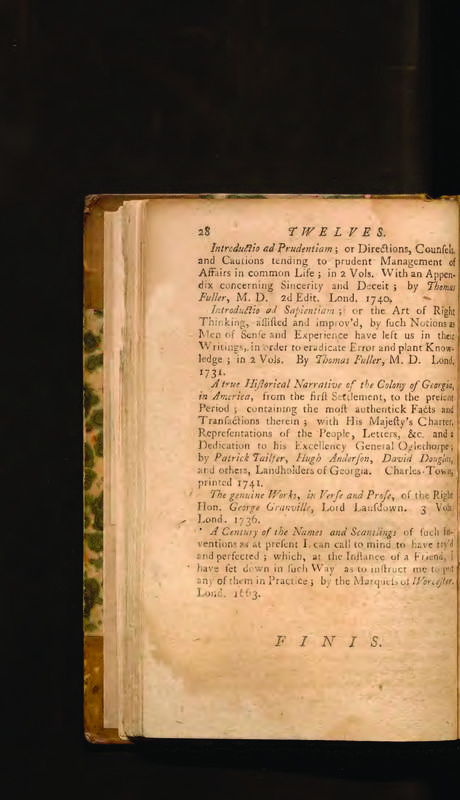 28 TWELVES.
Introductio ad Prudentiam ; or Directions, Counſels,
and Cautions tending to prudent Management of
Affairs in common Life ; in 2 Vols. With an Appen-
dix concerning Sincerity and Deceit ; by Thomas
Fuller, M. D. 2d Edit. Lond. 1740.
Introductio ad Sapientiam ; or the Art of Right
Thinking, aſſiſted and improv'd, by ſuch Notions as
Men of Senſe and Experience have left us in their
Writings, in order to eradicate Error and plant Know-
ledge ; in 2 Vols. By Thomas Fuller, M. D. Lond.
1731.
A true Hiſtorical Narrative of the Colony of Georgia,
in America, from the firſt Settlement, to the preſent
Period ; containing the moſt authentick Facts and
Tranſactions therein ; with His Majeſty's Charter,
Repreſentations of the People, Letters, &c. and a
Dedication to his Excellency General Oglethorpe ;
by Patrick Tailfer, Hugh Anderſon, David Douglas,
and others, Landholders of Georgia. Charles-Town,
printed 1741.
The genuine Works, in Verſe and Proſe, of the Right
Hon. George Granville, Lord Lanſdown. 3 Vols.
Lond. 1736.
A Century of the Names and Scantlings of ſuch In-
ventions as at preſent I can call to mind to have try'd
and perfected ; which, at the Inſtance of a Friend, I
have ſet down in ſuch Way as to inſtruct me to put
any of them in Practice ; by the Marqueſs of Worceſter.
Lond. 1663.
FINIS.